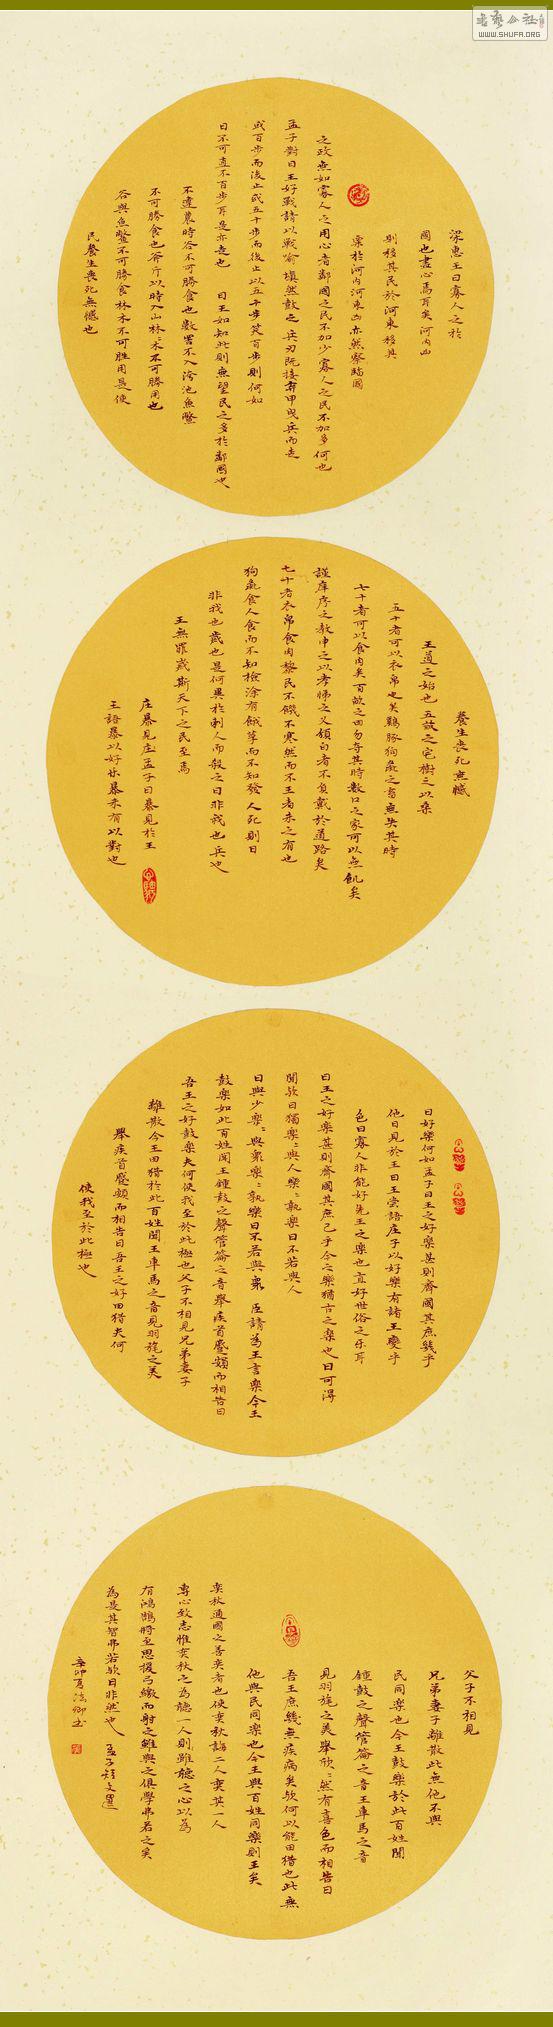 梁惠王曰寡人之於
國也盡心焉耳矣河內凶
則移其民於河東移其
粟於河內河東凶亦然察鄰國
之政無如寡人之用心者鄰國之民不加少寡人之民不加多何也
孟子對曰王好戰請以戰喻填然鼓之兵刃既接棄甲曳兵而走
或百步而後止或五十步而後止以五十步笑百步則何如
曰不可直不百步耳是亦走也 曰王如知此則無望民之多於鄰國也
不違農時谷不可勝食也數罟不入洿池魚鱉
不可勝食也斧斤以時入山林材木不可勝用也
谷與魚鱉不可勝食林木不可胜用是使
民養生喪死無憾也
養生喪死無憾
王道之始也五畝之宅樹之以桑
五十者可以衣帛也矣鷄豚狗彘之畜無失其時
七十者可以食肉矣百畝之田勿夺其時數口之家可以無飢矣
謹庠序之教申之以孝悌之义頒白者不負戴於道路矣
七十者衣帛食肉黎民不饑不寒然而不王者未之有也
狗彘食人食而不知檢涂有餓莩而不知發人死則曰
非我也歲也是何異於刺人而殺之曰非我也兵也
王無罪歲斯天下之民至焉
庄暴見庄孟子曰暴見於王
王語暴以好乐暴未有以對也
曰好樂何如孟子曰王之好樂甚則齊國其庶幾乎
他日見於王曰王尝語庄子以好樂有諸王變乎
色曰寡人非能好先王之樂也直好世俗之乐耳
曰王之好樂甚則齊國其庶已乎今之樂猶古之樂也曰可得
聞欤曰獨樂:與人樂:孰樂曰不若與人
曰與少樂:與衆樂:孰樂曰不若與衆 臣請為王言樂今王
鼓樂如此百姓闻王鍾鼓之聲管籥之音舉疾首蹙頞而相告曰
吾王之好鼓樂夫何使我至於此極也父子不相見兄弟妻子
離散今王田猎於此百姓聞王車馬之音見羽旄之美
舉疾首蹙頞而相告曰吾王之好田猎夫何
使我至於此極也
父子不相見
兄弟妻子離散此無他不與
民同樂也今王鼓樂於此百姓聞
鍾鼓之聲管籥之音王車馬之音
見羽旄之美舉欣:然有喜色而相告曰
吾王庶幾無疾病矣欤何以能田猎也此無
他與民同樂也今王與百姓同樂則王矣
奕秋通國之善奕者也使奕秋誨二人奕其一人
專心致志惟奕秋之為聽一人則雖聽之心以為
有鴻鵠將至思援弓繳而射之雖與之俱學弗若之矣
為是其智弗若欤曰非然也 孟子短文選
辛卯夏法卿书
WWW.SHUFA.ORG